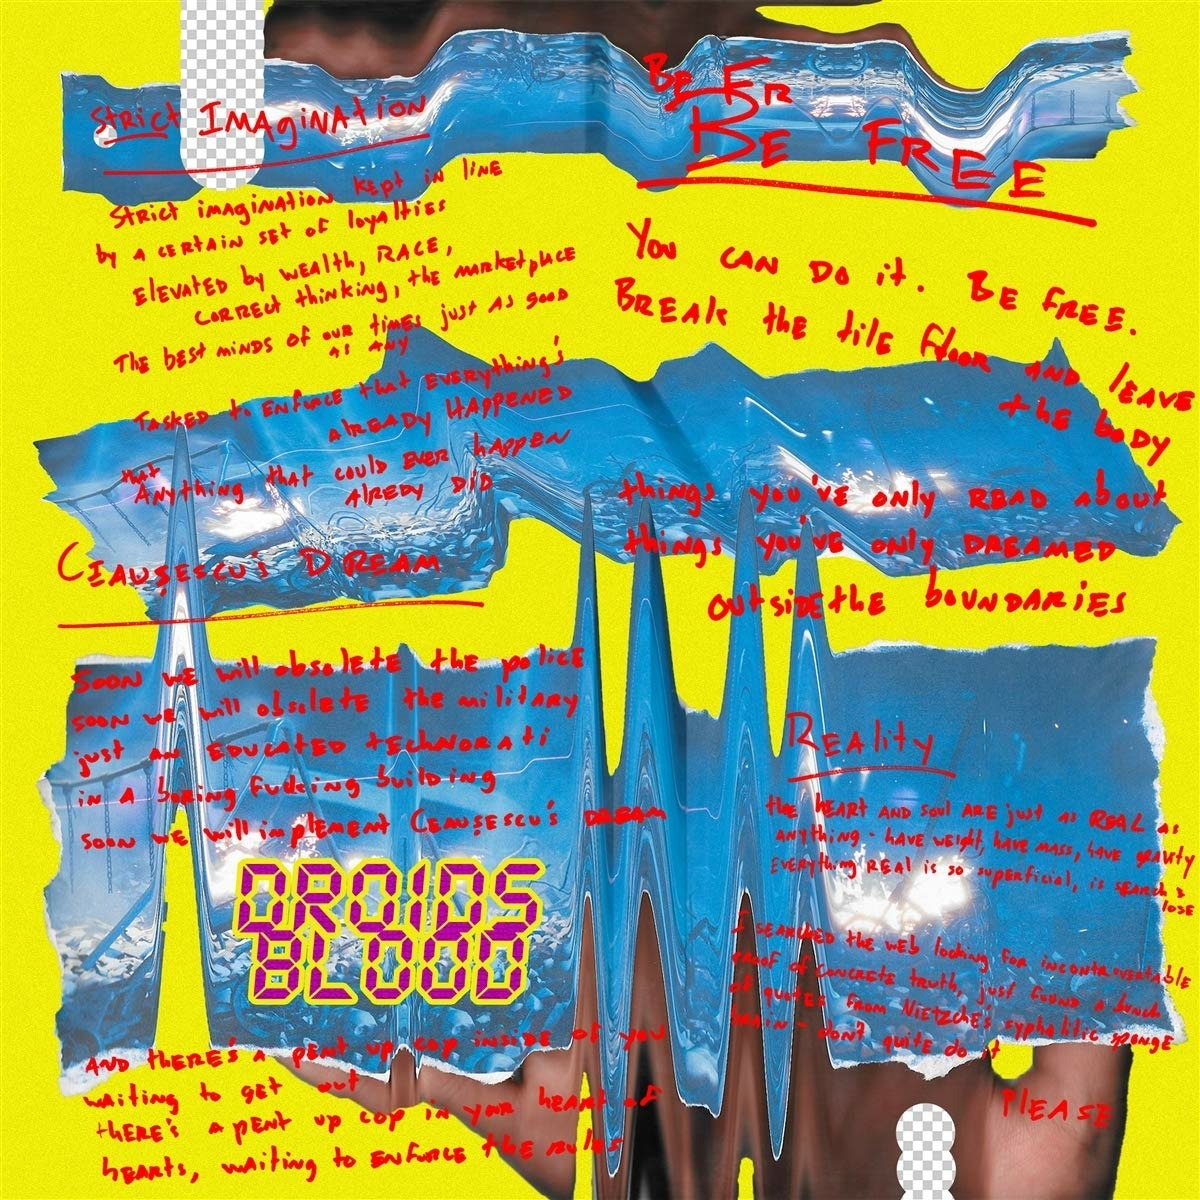 Strict IMAgiNAtioN
Strict imagination kept in line
by a certain set of loyalties
Elevated by wealth, RACE,
correct thinking, the marketplace
The best minds of our times just as good
as any
Tasked to enforce that everything's
already happened
that
Anything that could ever happen
alredy did
Ceauşescu's Dream
Soon we will obsolete the police
soon we will obsolete the military
just an educated technorati
in a boring fucking building
soon we will implement Ceauşescu's dream
DROIDS
BLOOD
And there's a pent up cop inside of you
waiting to get out
there's a pent up cop in your heart of
hearts, waiting to enforce the rules
Be Fr
Be Free
You can do it. Be free.
Break the tile floor and leave
the body
things you've only read about
things you've only dreamed
outside the boundaries
Reality
the heart and soul are just as real as
anything - have weight, have mass, have gravity
Everything real is so superficial, is search &
lose
I searched the web looking for incontrovertable
proof of concrete truth, just found a bunch
of quotes from Nietzche's syphalitic sponge
brain - don't quite do it
Please